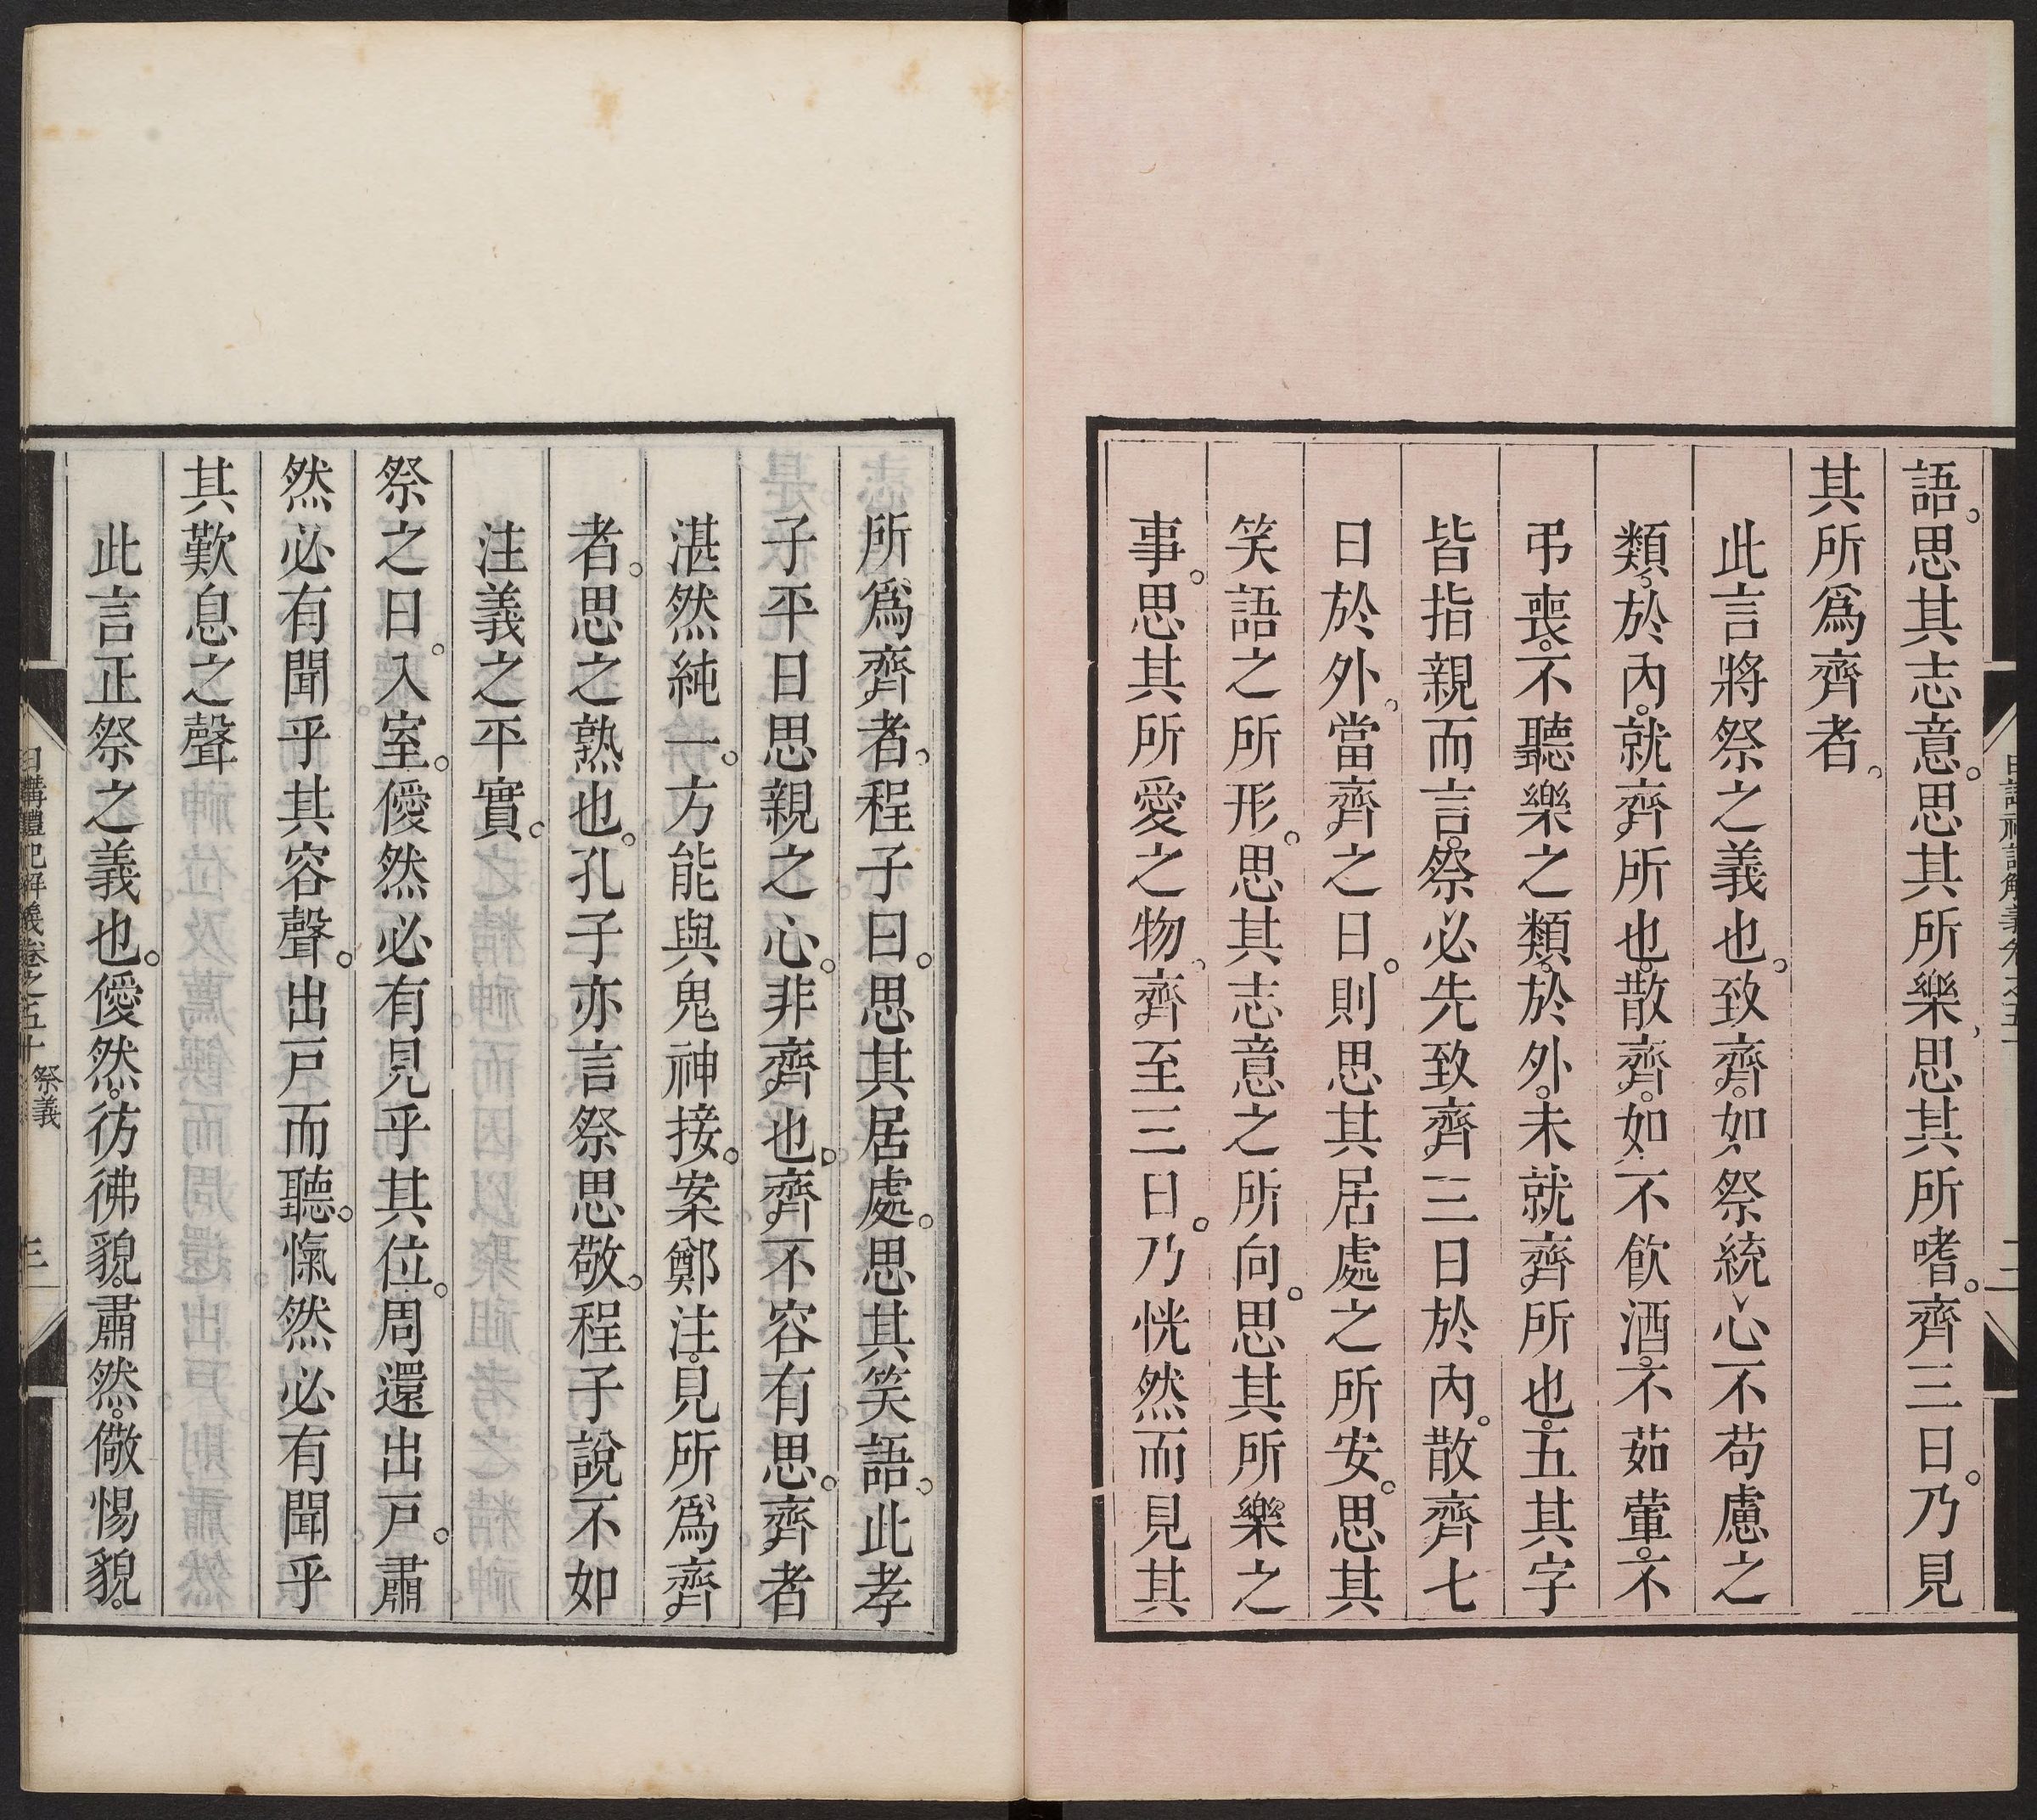 語。思其志意。思其所樂、思其所嗜。齊三日。乃見
其所爲齊者。
此言將祭之義也。致齊。如祭統心不苟慮之
類。於內。就齊所也。散齊。如不飮酒。不茹葷。不
弔喪。不聽樂之類。於外。未就齊所也。五其字
皆指親而言。祭必先致齊三日於內。散齊七
日於外。當齊之日。則思其居處之所安。思其
笑語之所形。思其志意之所向。思其所樂之
事。思其所愛之物。齊至三日。乃恍然而見其
所爲齊者、程子曰。思其居處。思其笑語。此孝
子平日思親之心。非齊也。齊不容有思。齊者
湛然純一。方能與鬼神接。案鄭注。見所爲齊
者。思之熟也。孔子亦言祭思敬。程子說不如
注義之平實。
祭之日。入室。僾然必有見乎其位。周還出戸。肅
然必有聞乎其容聲。出戸而聽。愾然必有聞乎
其歎息之聲
此言正祭之義也。僾然。彷彿貌。肅然。儆惕貌。
日講禮記解義卷之五十 祭義 三